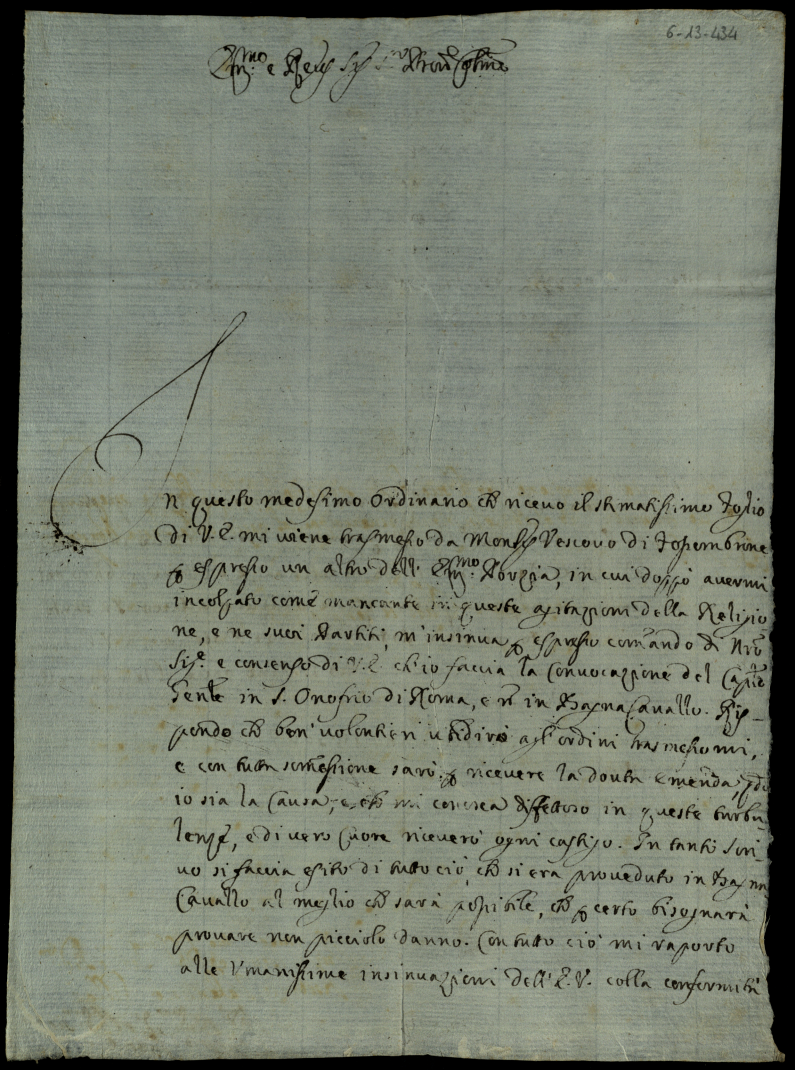 6-13-434
Em.mo e Rev. Sig. Sig.r Pron. Col.mo
In questo medesimo Ordinario ch ricevo il stimatissimo foglio
di V. E. mi viene trasmesso da Mons.g Vescovo di Fossombrone
p espresso un altro dell' Em.mo, in cui doppò avermi
incolpato come mancante in queste agitazioni della Religio
ne, e ne suoi Partiti, m'insinua p espresso comando di Nro
Sig.e e consenso di V. E. ch'io faccia la Convocazione del Cap.lo
Genle in S. Onofrio di Roma, e n in BagnaCavallo. Ris-
pondo ch ben volontieri ubidirò agl'ordini trasmessomi,
e con tutta somessione sarò p ricevere la douta emenda,
io sia la Causa, e ch mi conosca difettoso in queste turbu
lenze, e di vero Cuore riceverò ogni castigo. In tanto scri-
vo si faccia esito di tutto ciò, ch si era proveduto in Bagna
Cavallo al meglio ch sarà possibile, ch p certo bisognarà
provare non picciolo danno. Con tutto ciò mi raporto
alle Vmanissime insinuazioni dell' E. V. colla conformità